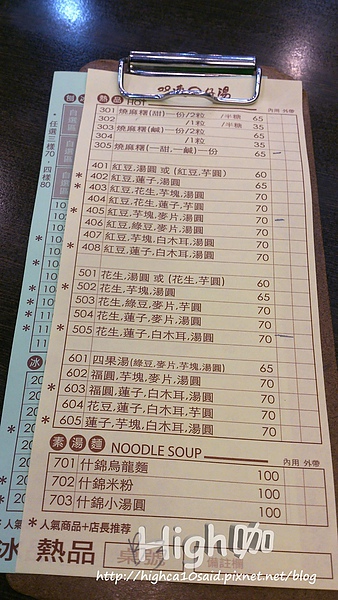 任選三樣70,四樣80
熱品 HOT
內用 外帶
301 燒麻糬(甜)一份/2粒 /半糖 65
302 /1粒 /半糖 35
303 燒麻糬(鹹)一份/2粒 65
304 /1粒 35
305 燒麻糬(一甜,一鹹)一份 65
401 紅豆,湯圓 或 (紅豆,芋圓) 60
＊402 紅豆,蓮子,湯圓 70
403 紅豆,花生,芋塊,湯圓 70
404 紅豆,花生,蓮子,芋圓 70
＊405 紅豆,芋塊,麥片,湯圓 70
406 紅豆,綠豆,麥片,芋圓 70
407 紅豆,芋塊,白木耳,湯圓 70
＊408 紅豆,蓮子,白木耳,芋圓 70
501 花生,湯圓 或 (花生,芋圓) 60
＊502 花生,芋塊,湯圓 65
503 花生,綠豆,麥片,芋圓 70
504 花生,蓮子,麥片,芋圓 70
＊505 花生,蓮子,白木耳,湯圓 70
601 四果湯(綠豆,麥片,芋塊,湯圓) 65
602 福圓,芋塊,麥片,湯圓 70
＊603 福圓,蓮子,白木耳,湯圓 70
604 花豆,蓮子,白木耳,芋圓 70
＊605 蓮子,芋塊,白木耳,湯圓 70
素湯麵 NOODLE SOUP
內用 外帶
701 什錦烏龍麵 100
702 什錦米粉 100
703 什錦小湯圓 100
＊人氣商品+店長推荐
冰 熱品 桌號 備註欄
High咖
http://highca10said.pixnet.net/blog